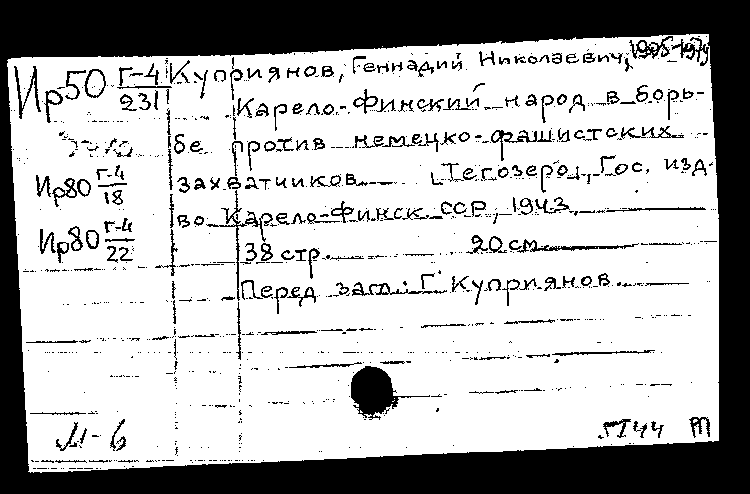 Ир50 Г-4/231 Куприянов, Геннадий Николаевич, 1905-1979
Карело-Финский народ в борь-
бе против немецко-фашистских
Ир80 Г-4/18 захватчиков. [Сегозеро], Гос. изд-
во Карело-Финск. ССР, 1943.
Ир80 Г-4/22 38 стр. 20 см.
Перед загл.: Г. Куприянов.
М-6
5I44 m